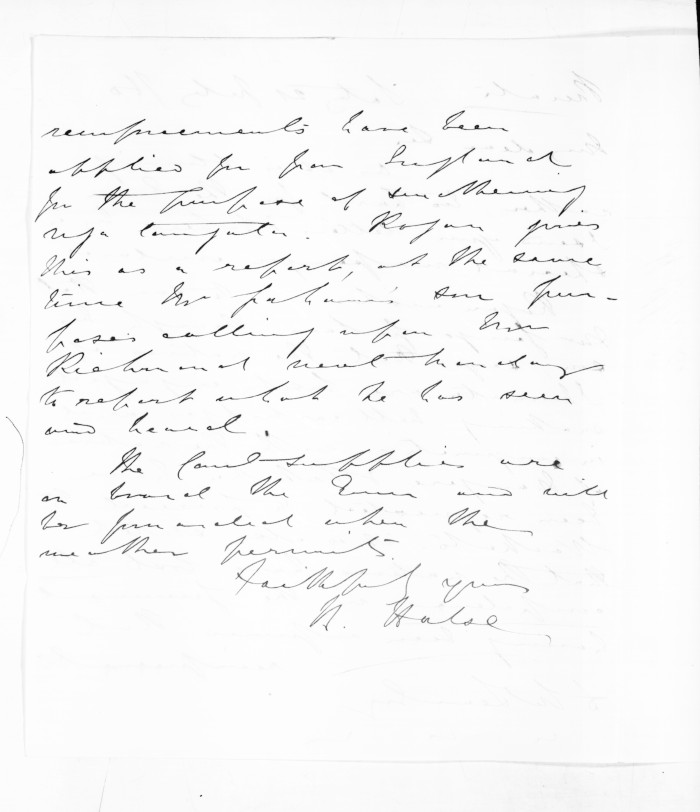 reinforcements have been
applied for from England
for the purpose of smothering
nga tangata. Rogan gives
this as a report, at the same
time Mr Graham's son pur-
poses calling upon Mr
Richmond next Monday
to report what he has seen
and heard.
The Court supplies are
on board the and will
be forwarded when the
weather permits.
Faithfully yours
H. Halse